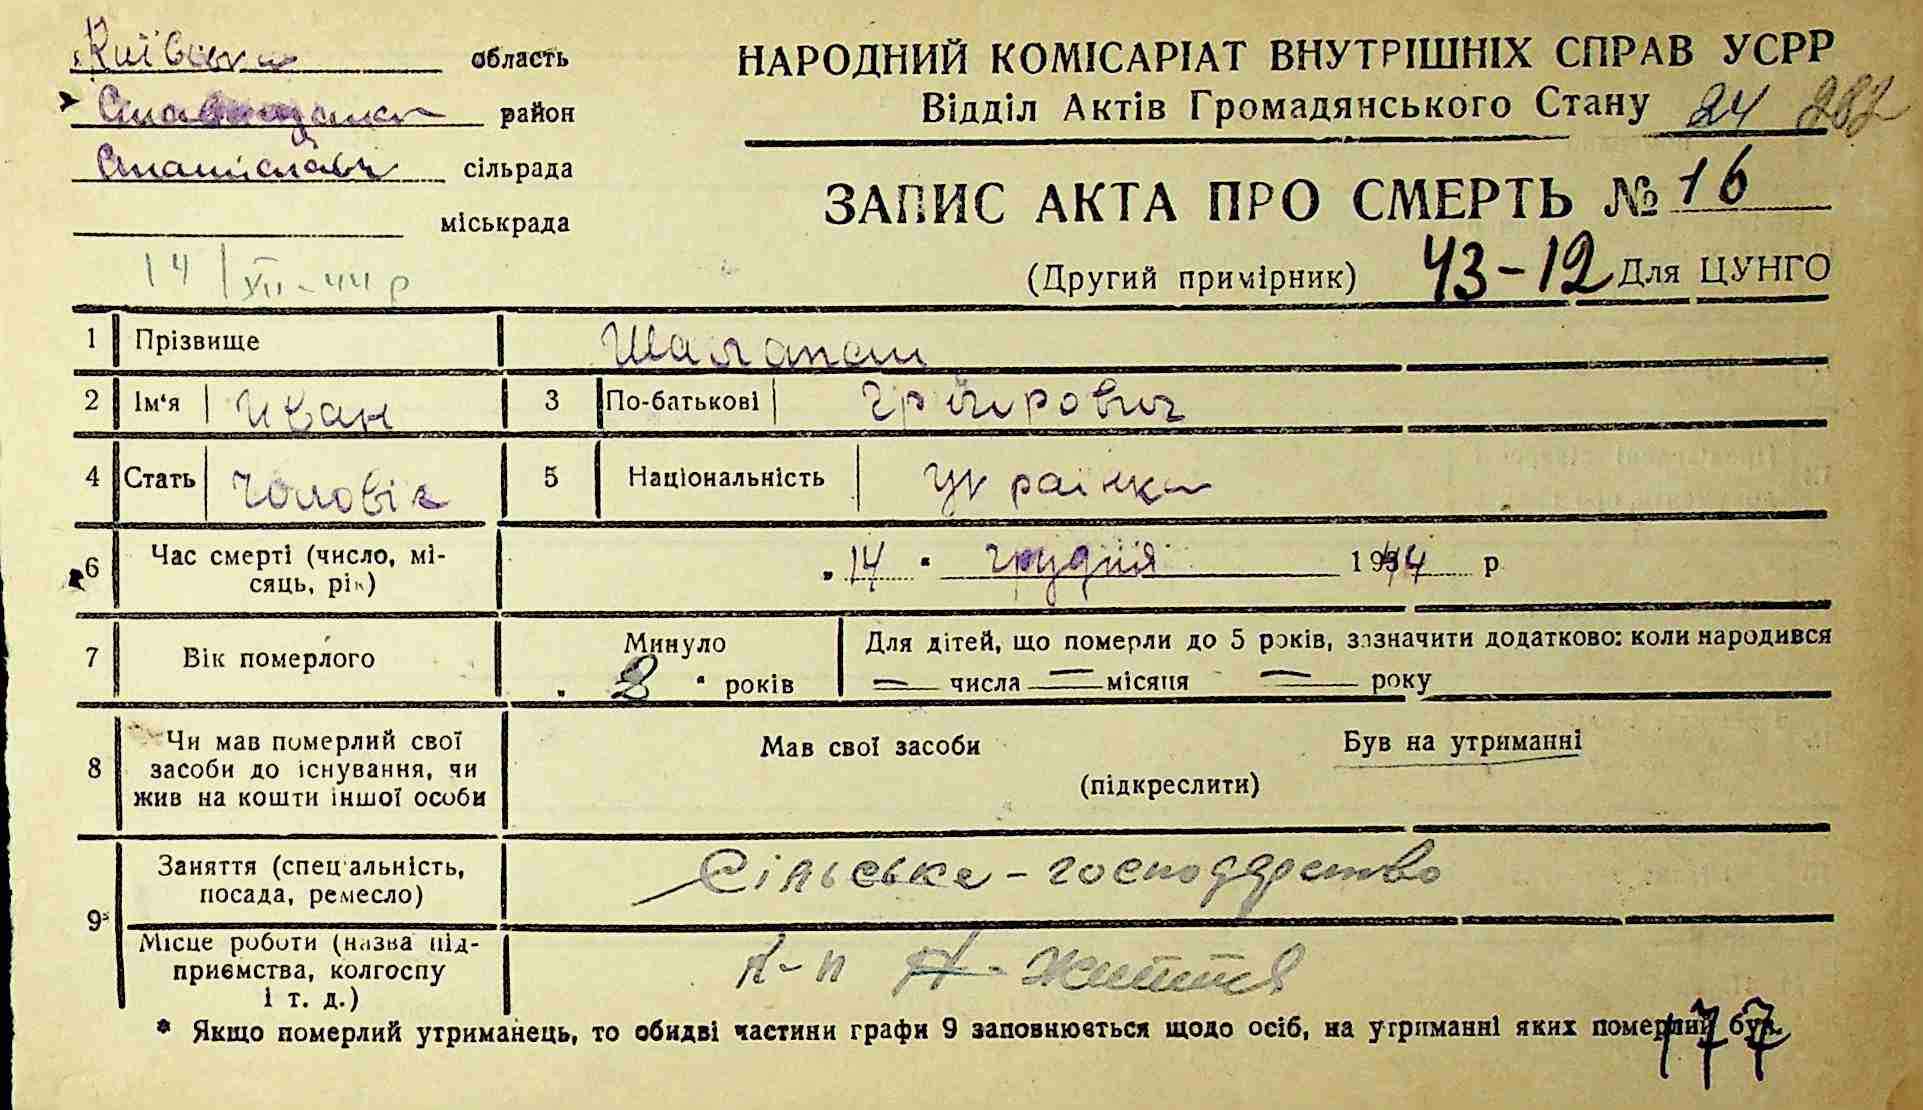 Київська область
район
сільрада
міськрада
14/VII-44 р
НАРОДНИЙ КОМІСАРІАТ ВНУТРІШНІХ СПРАВ УСРР
Відділ Актів Громадянського Стану 24 282
ЗАПИС АКТА ПРО СМЕРТЬ № 16
(Другий примірник) 43-12 Для ЦУНГО
1 Прізвище
2 Ім'я Иван 3 По-батькові
4 Стать чоловік 5 Національність українка
6 Час смерті (число, мі-
сяць, рік) „14" грудня 1944 р
7 Вік померлого Минуло „2" років
Для дітей, що померли до 5 років, зазначити додатково: коли народився
— числа — місяця — року
8 Чи мав померлий свої
засоби до існування, чи
жив на кошти іншої особи
Мав свої засоби Був на утриманні
(підкреслити)
9* Заняття (спеціальність,
посада, ремесло) Сільське - господарство
Місце роботи (назва під-
приємства, колгоспу
і т. д.) життя
* Якщо померлий утриманець, то обидві частини графи 9 заповнюється щодо осіб, на утриманні яких померлий був.
177